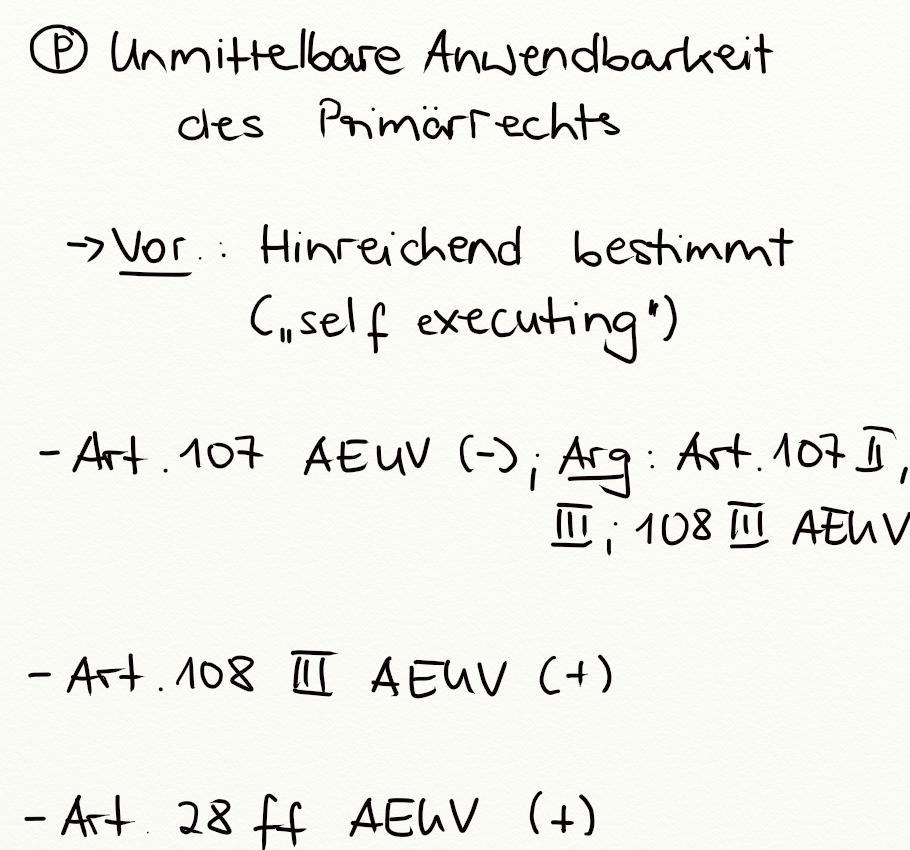 Ⓟ Unmittelbare Anwendbarkeit
des Primärrechts
→ Vor.: Hinreichend bestimmt
(„self executing")
- Art. 107 AEUV (-); Arg: Art. 107 II,
III; 108 III AEUV
- Art. 108 III AEUV (+)
- Art. 28 ff AEUV (+)